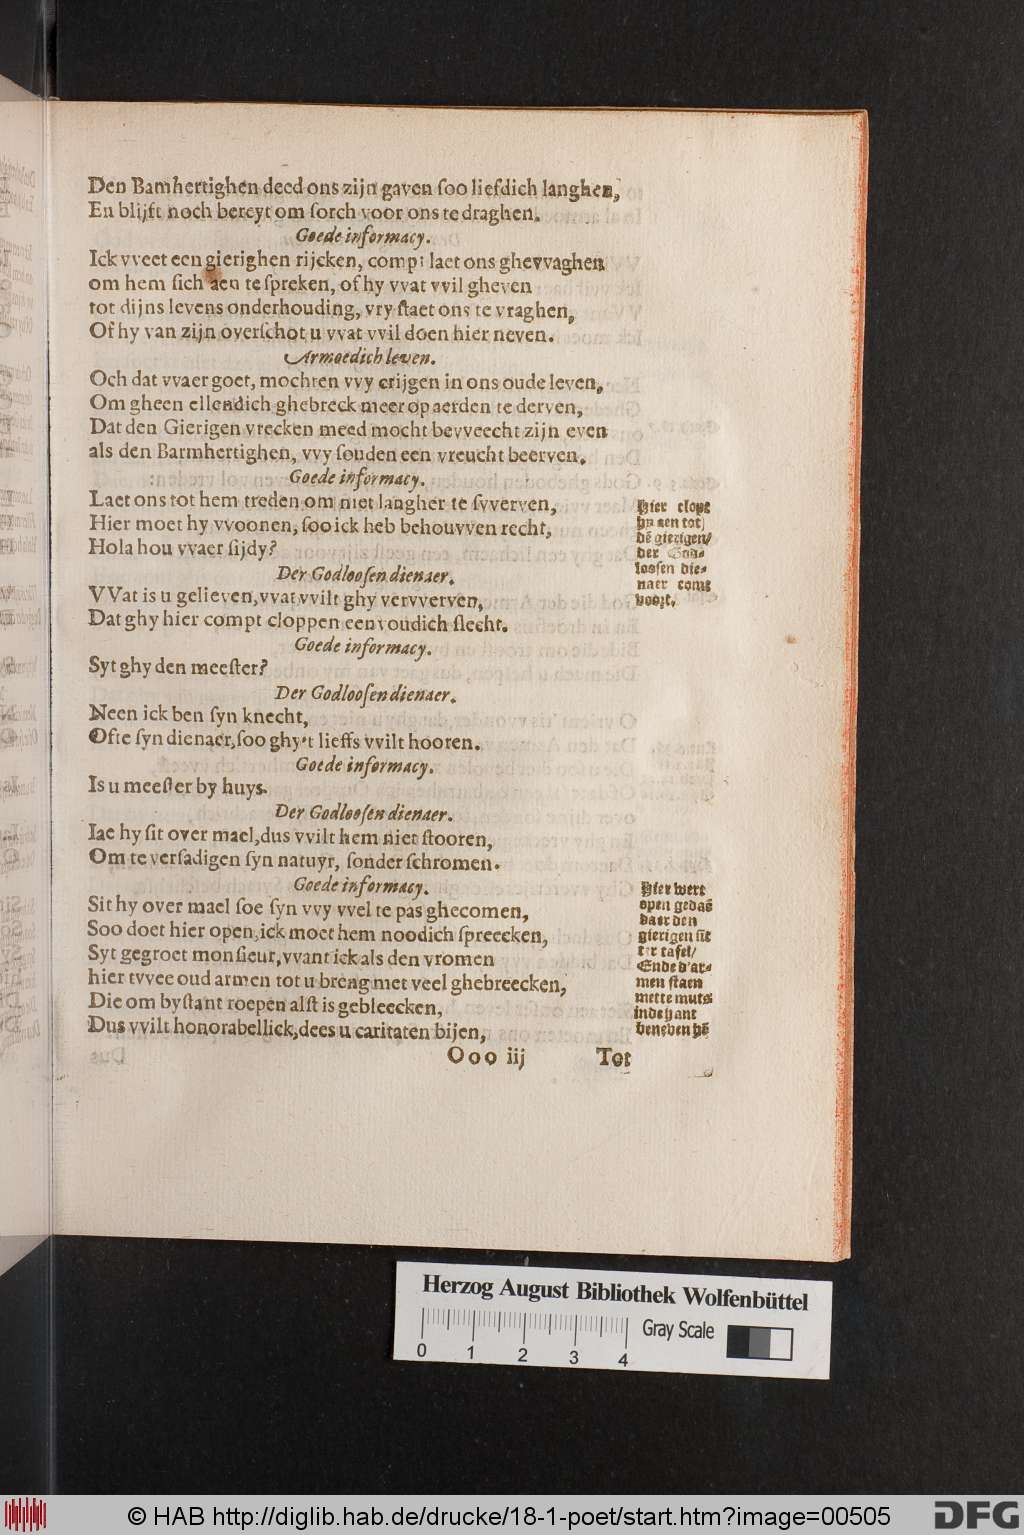 Den Bamhertighen deed ons zijn gaven ſoo liefdich langhen,
En blijft noch bereyt om ſorch voor ons te draghen.
Goede informacy.
Ick vveet een gierighen rijcken, compt laet ons ghevvaghen
om hem ſich aen te ſpreken, of hy vvat vvil gheven
tot dijns levens onderhouding, vry ſtaet ons te vraghen,
Of hy van zijn overſchot u vvat vvil doen hier neven.
Armoedich leven.
Och dat vvaer goet, mochten vvy crijgen in ons oude leven,
Om gheen ellendich ghebreck meer op aerden te derven,
Dat den Gierigen vrecken meed mocht bevveecht zijn even
als den Barmhertighen, vvy ſouden een vreucht beerven.
Goede informacy.
Laet ons tot hem treden om niet langher te ſvverven,
Hier moet hy vvoonen, ſoo ick heb behouvven recht,
Hola hou vvaer ſijdy?
Der Godlooſen dienaer.
VVat is u gelieven, vvat vvilt ghy vervverven,
Dat ghy hier compt cloppen eenvoudich ſlecht.
Goede informacy.
Syt ghy den meeſter?
Der Godlooſen dienaer.
Neen ick ben ſyn knecht,
Ofte ſyn dienaer, ſoo ghy't lieffs vvilt hooren.
Goede informacy.
Is u meeſter by huys.
Der Godlooſen dienaer.
Iae hy ſit over mael, dus vvilt hem niet ſtooren,
Om te verſadigen ſyn natuyr, ſonder ſchromen.
Goede informacy.
Sit hy over mael ſoe ſyn vvy vvel te pas ghecomen,
Soo doet hier open, ick moet hem noodich ſpreecken,
Syt gegroet monſieur, vvant ick als den vromen
hier tvvee oud armen tot u breng met veel ghebreecken,
Die om byſtant roepen alſt is gebleecken,
Dus vvilt honorabellick, dees u caritaten bijen,
Ooo iij Tot
Hier clopt
hy aen tot
dē gierigen/
der God-
looſen die-
naer comt
voort.
Hier wert
open gedaē
daer den
gierigen ſit
ter tafel/
Ende d'ar-
men ſtaen
mette muts
inde hant
beneven hē
Herzog August Bibliothek Wolfenbüttel
0 1 2 3 4 Gray Scale
© HAB http://diglib.hab.de/drucke/18-1-poet/start.htm?image=00505
DFG